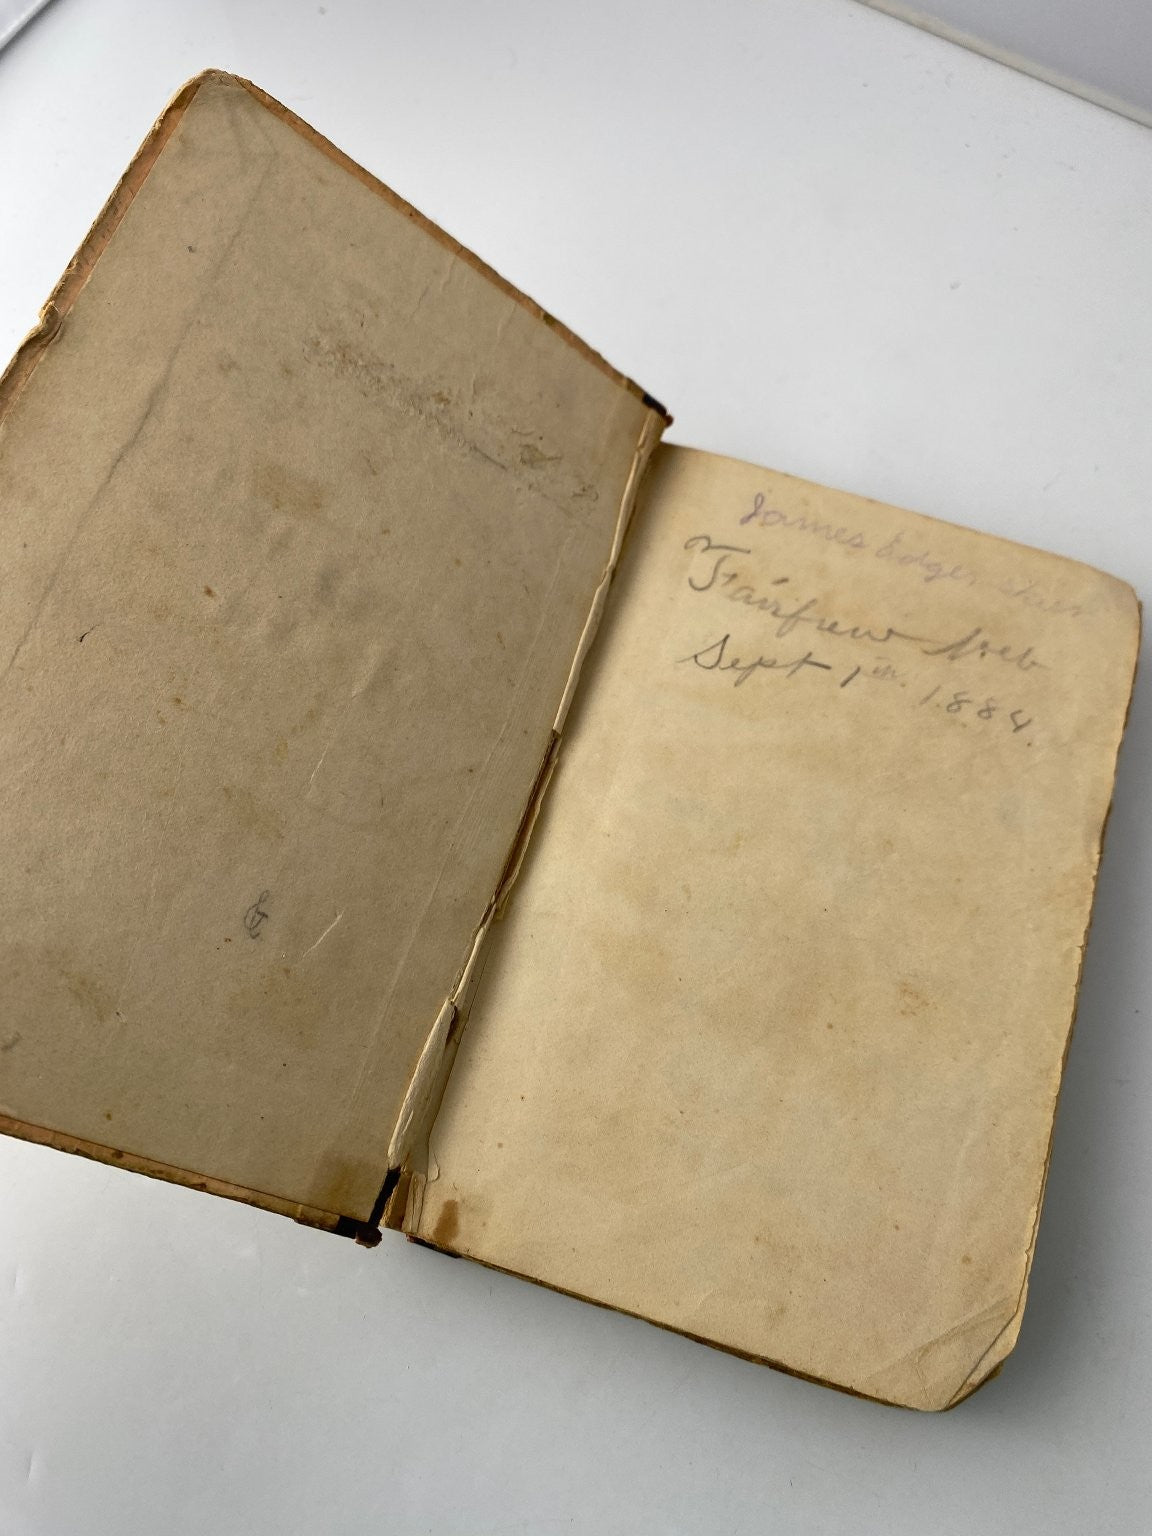 James Edgerton
Fairfiew Neb
Sept 1th. 1884.
&